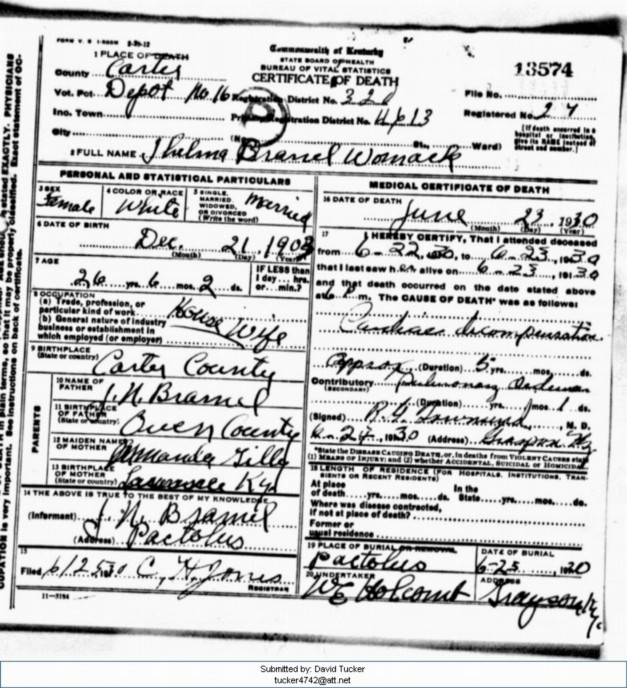 Commonwealth of Kentucky
STATE BOARD OF HEALTH
BUREAU OF VITAL STATISTICS
CERTIFICATE OF DEATH
13574
1 PLACE OF DEATH
County Carter
Vot. Pct. Depot No. 16 Registration District No.
File No.
Inc. Town Primary Registration District No.
Registered No. 27
City (No. St., Ward)
[If death occurred in a hospital or institution, give its NAME instead of street and number.]
2 FULL NAME Thelma Bramel Womack
PERSONAL AND STATISTICAL PARTICULARS
3 SEX Female
4 COLOR OR RACE White
5 SINGLE, MARRIED, WIDOWED, OR DIVORCED (Write the word) Married
6 DATE OF BIRTH
Dec. 21 190
(Month) (Day) (Year)
7 AGE
26 yrs. 6 mos. 2 ds.
IF LESS than 1 day... hrs. or... min.?
8 OCCUPATION
(a) Trade, profession, or particular kind of work House Wife
(b) General nature of industry business or establishment in which employed (or employer)
9 BIRTHPLACE
(State or country) Carter County
PARENTS
10 NAME OF FATHER J. N. Bramel
11 BIRTHPLACE OF FATHER
(State or country) Owen County
12 MAIDEN NAME OF MOTHER Amanda
13 BIRTHPLACE OF MOTHER
(State or country) Ky
14 THE ABOVE IS TRUE TO THE BEST OF MY KNOWLEDGE
(Informant) J. N. Bramel
(Address) Pactolus
15
Filed 30 C. H. Jones
REGISTRAR
11-3184
MEDICAL CERTIFICATE OF DEATH
16 DATE OF DEATH
June 23, 1930
(Month) (Day) (Year)
17 I HEREBY CERTIFY, That I attended deceased
from 6-22 1930, to 6-23, 1930
that I last saw her alive on 6-23, 1930
and that death occurred on the date stated above
at m. The CAUSE OF DEATH* was as follows:
Cardiac decompensation
Approx (Duration) 5 yrs. mos. ds.
Contributory Pulmonary Oedema
(SECONDARY)
(Duration) yrs. mos. 1 ds.
(Signed) R. G. M. D.
6-24, 1930 (Address) Grayson Ky
*State the DISEASE CAUSING DEATH, or, in deaths from VIOLENT CAUSES state
(1) MEANS OF INJURY; and (2) whether ACCIDENTAL, SUICIDAL or HOMICIDAL
18 LENGTH OF RESIDENCE (FOR HOSPITALS, INSTITUTIONS, TRANSIENTS OR RECENT RESIDENTS)
At place of death yrs. mos. ds. In the State yrs. mos. ds.
Where was disease contracted,
if not at place of death?
Former or
usual residence
19 PLACE OF BURIAL OR REMOVAL Pactolus
DATE OF BURIAL 6-25, 1930
20 UNDERTAKER WE Holcomb
ADDRESS Grayson Ky
Submitted by: David Tucker
tucker4742@att.net